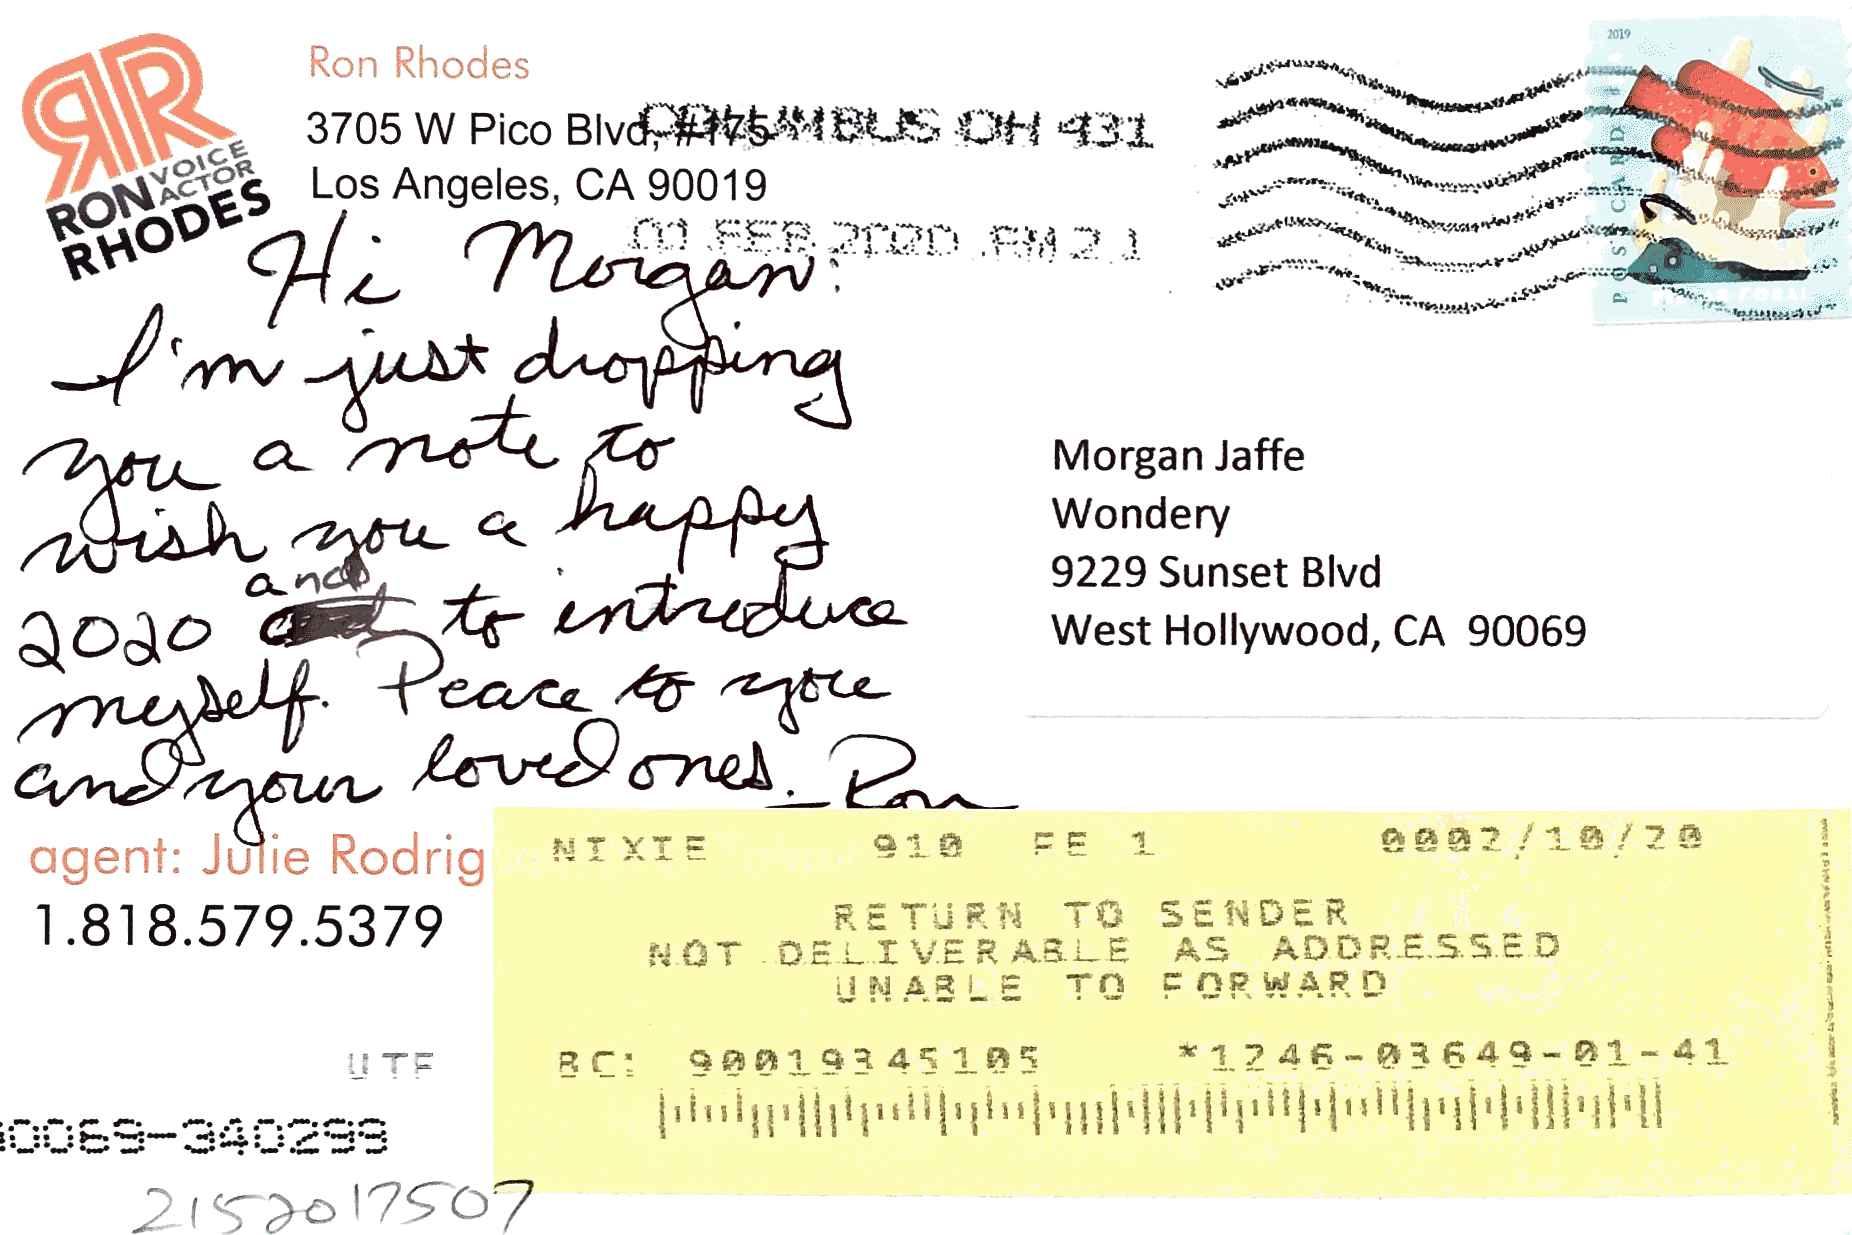 RR
RON VOICE ACTOR
RHODES
Ron Rhodes
3705 W Pico Blvd, #175
Los Angeles, CA 90019
COLUMBUS OH 431
01 FEB 2020 PM 2 1
2019
POSTCARD
Hi Morgan:
I'm just dropping
you a note to
wish you a happy
and
2020 to introduce
myself. Peace to you
and your loved ones.
– Ron
Morgan Jaffe
Wondery
9229 Sunset Blvd
West Hollywood, CA 90069
agent: Julie Rodrig
1.818.579.5379
NIXIE 910 FE 1 0002/10/20
RETURN TO SENDER
NOT DELIVERABLE AS ADDRESSED
UNABLE TO FORWARD
UTF
BC: 90019345105 *1246-03649-01-41
0069-340299
2152017507